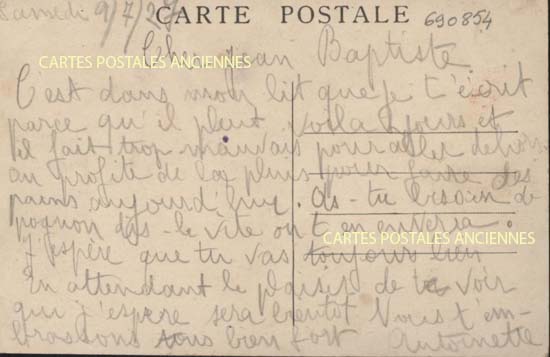 Samedi 9/7/27
CARTE POSTALE
690854
Cher Jean Baptiste
CARTES POSTALES ANCIENNES
C'est dans mon lit que je t'écrit
parce qu'il pleut voila jours et
il fait trop mauvais pour aller dehors
on profite de la pluis pour faire des
pains aujourd'hui. As-tu besoin de
pognon dis-le vite on t'en enverra.
CARTES POSTALES ANCIENNES
J'espère que tu vas toujours bien
En attendant le plaisir de te voir
qui j'espère sera bientot Nous t'em-
brassons tous bien fort Antoinette